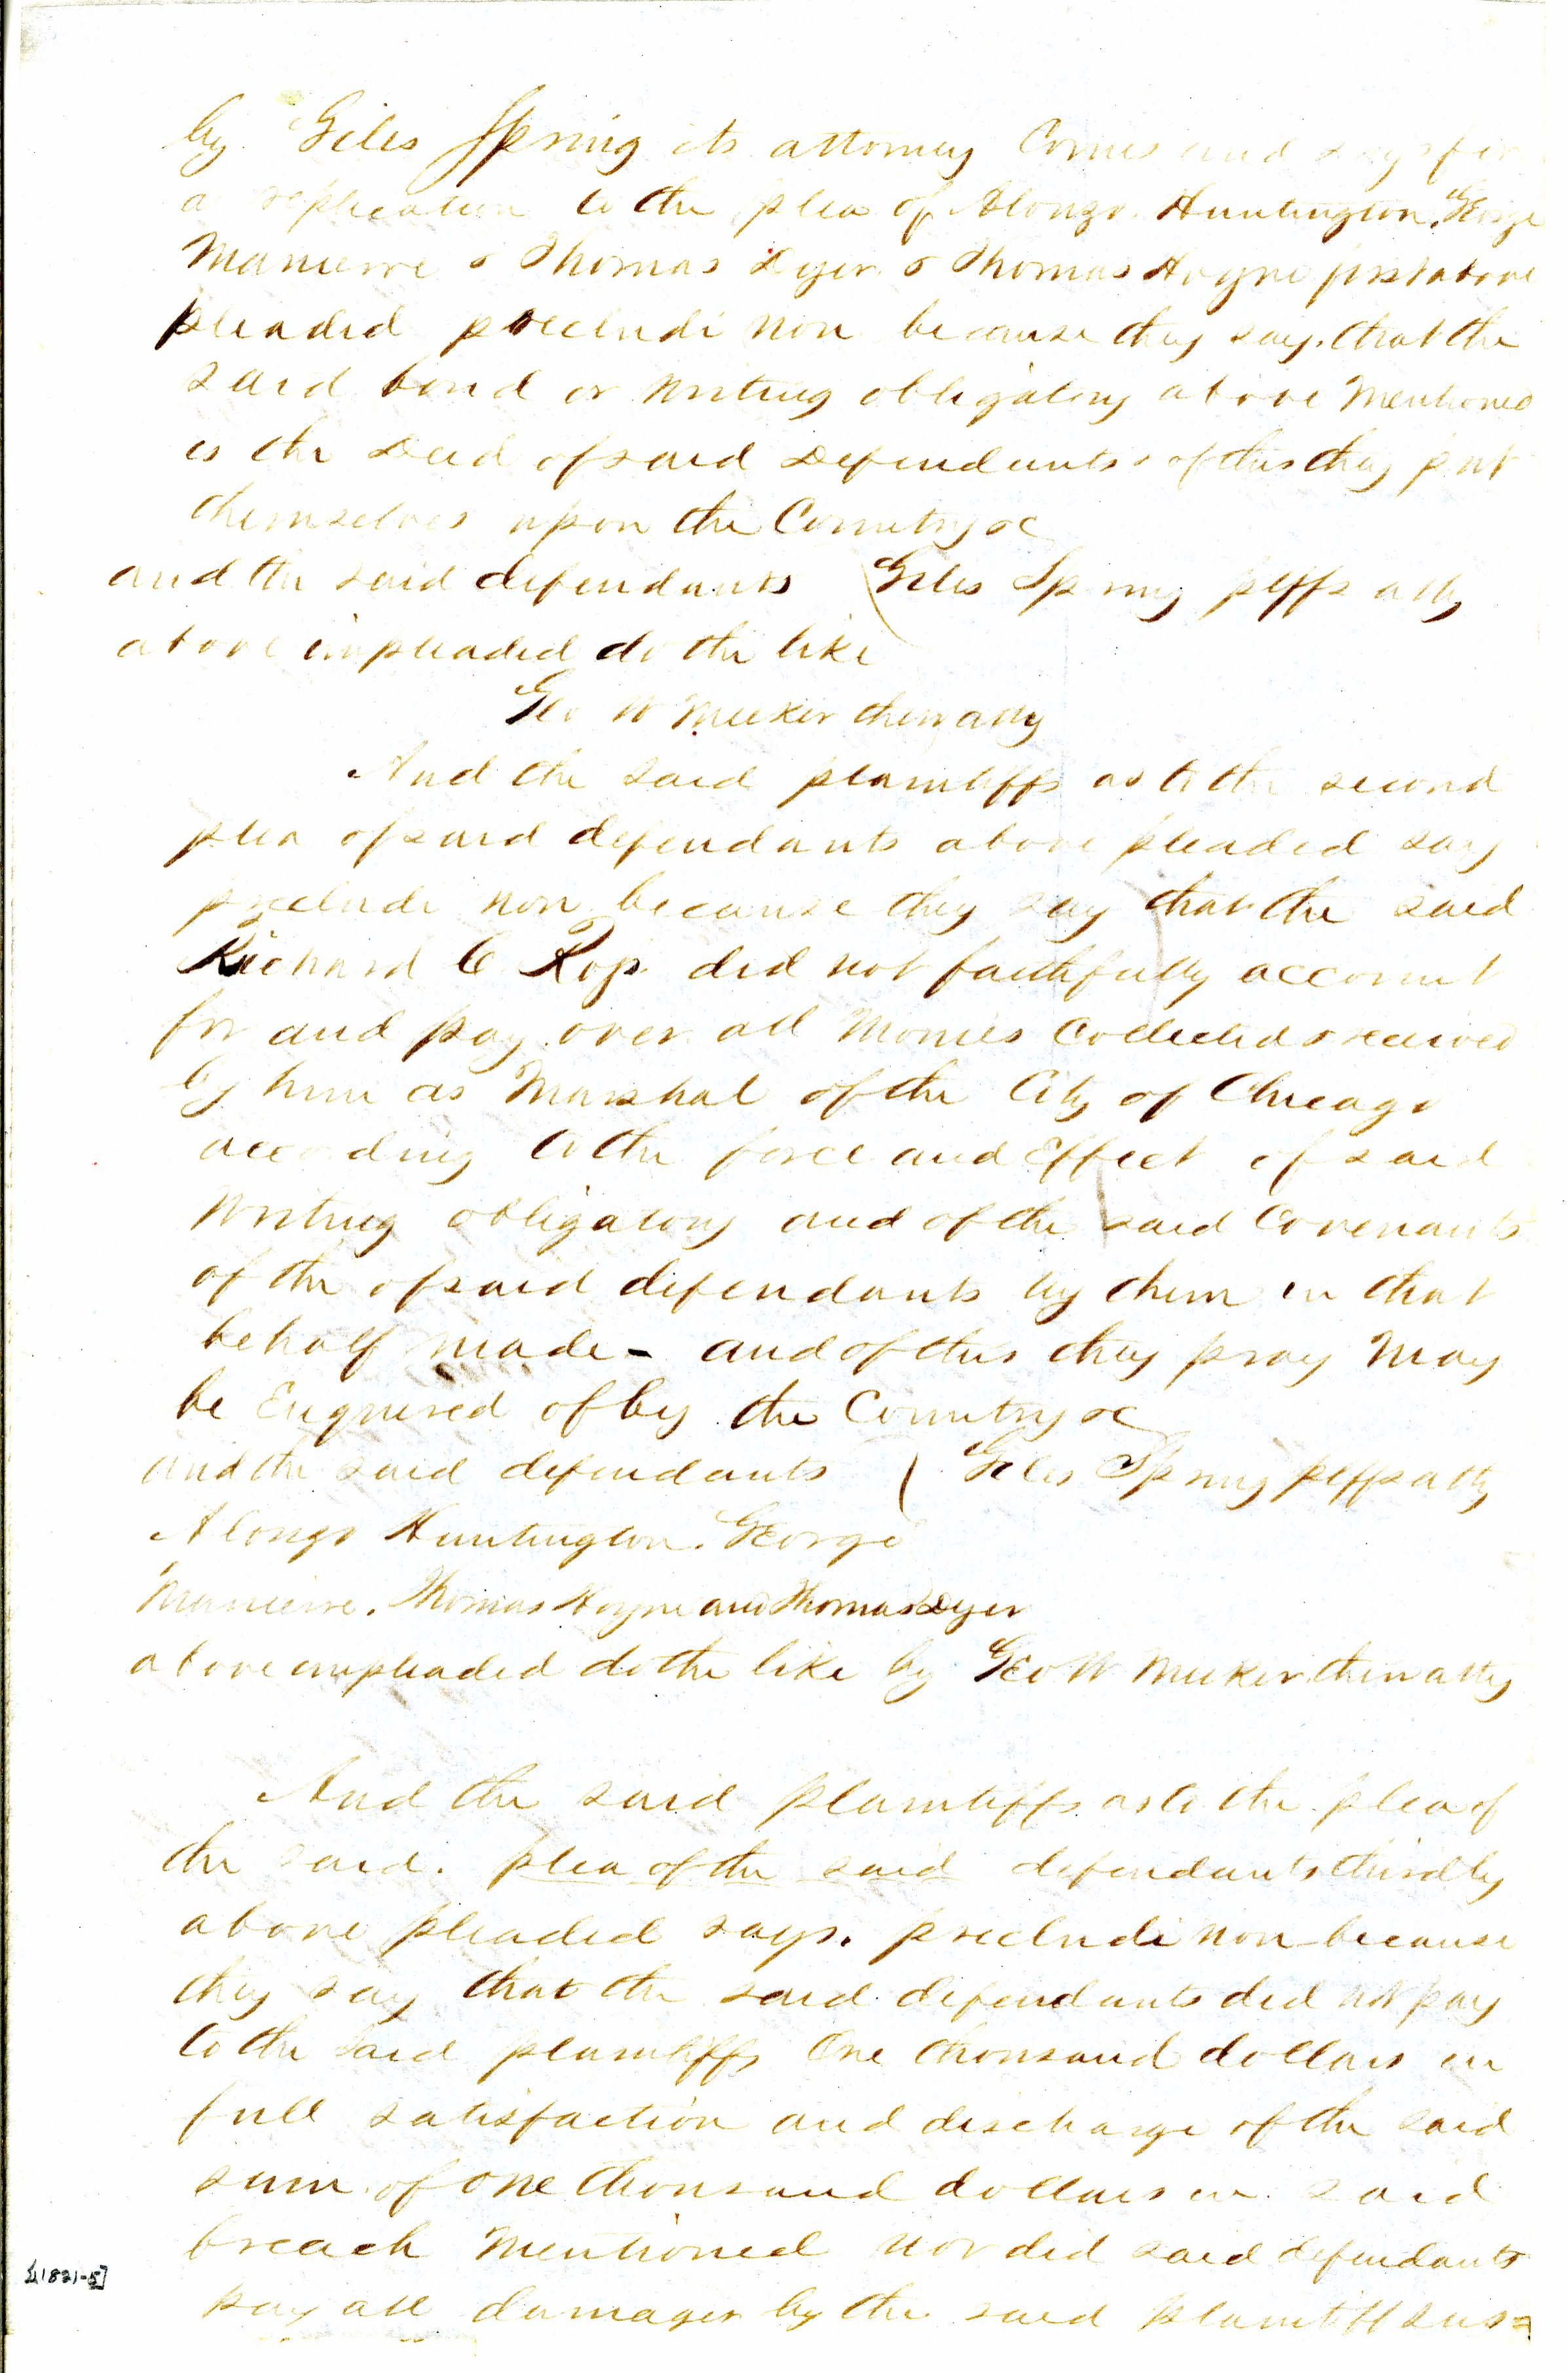 by Giles Spring its attorney Comes and says for
a replication to the plea of Alonzo Huntington, George
Manierre & Thomas Dyer & Thomas Hoyne first above
pleaded precludi non because they say, that the
said bond or writing obligatory above Mentioned
is the deed of said Defendants & of this they put
themselves upon the Country &c
and the said defendants ( Giles Spring plffs atty
above impleaded do the like
Geo W Meeker their atty
And the said plaintiffs as to the second
plea of said defendants above pleaded say
precludi non because they say that the said
Richard C Ross did not faithfully account
for and pay over all Monies Collected & received
by him as Marshal of the City of Chicago
according to the force and Effect of said
Writing obligatory and of the said Covenants
of the of said defendants by them in that
behalf made - and of this they pray May
be Enquired of by the Country &c
and the said defendants ( Giles Spring plffs atty
Alonzo Huntington, George
Manierre, Thomas Hoyne and Thomas Dyer
above impleaded do the like by Geo W Meeker their atty
And the said plaintiffs as to the plea of
the said. plea of the said defendants thirdly
above pleaded says. precludi non because
they say that the said defendants did not pay
to the said plaintiffs One thousand dollars in
full satisfaction and discharge of the said
sum of one thousand dollars in said
breach Mentioned nor did said defendants
pay all damages by the said plaintiff sus=
[1821-5]